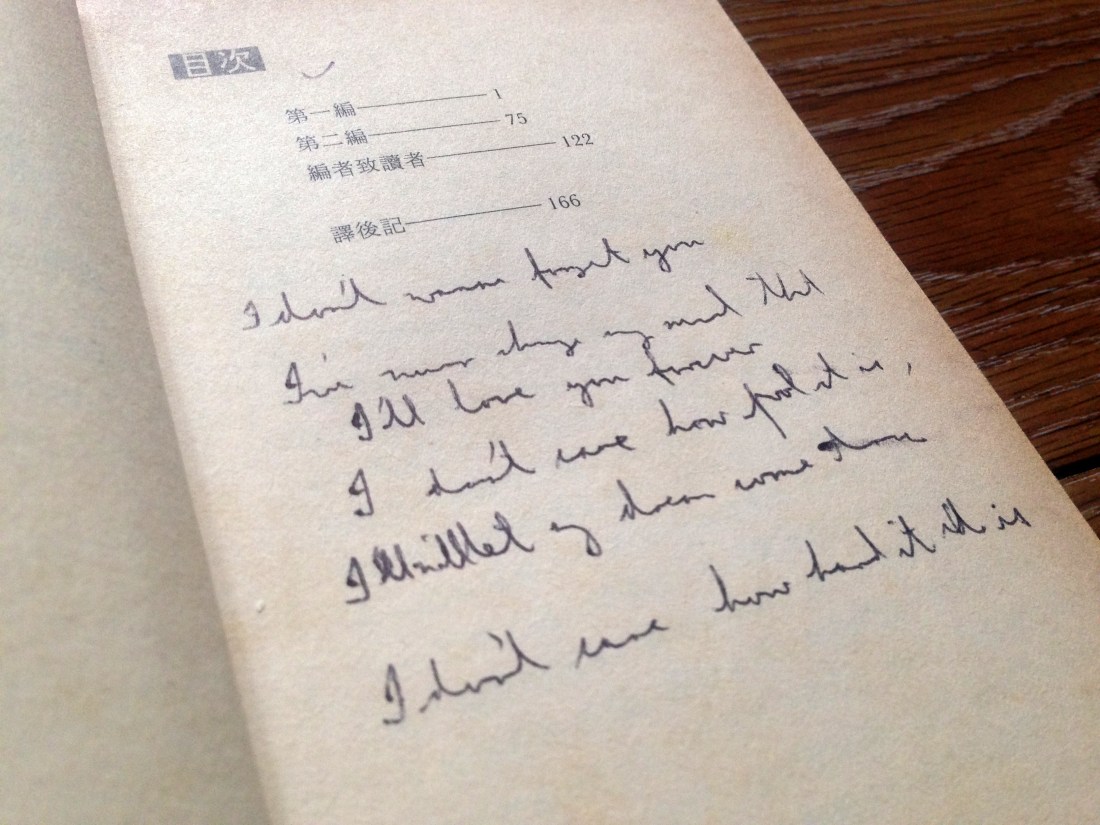 目次
第一編 1
第二編 75
編者致讀者 122
譯後記 166
I don't wanna forget you
I've never change my mind that
I'll love you forever
I don't care how fool it is,
I will let my dream come true
I don't care how hard it is